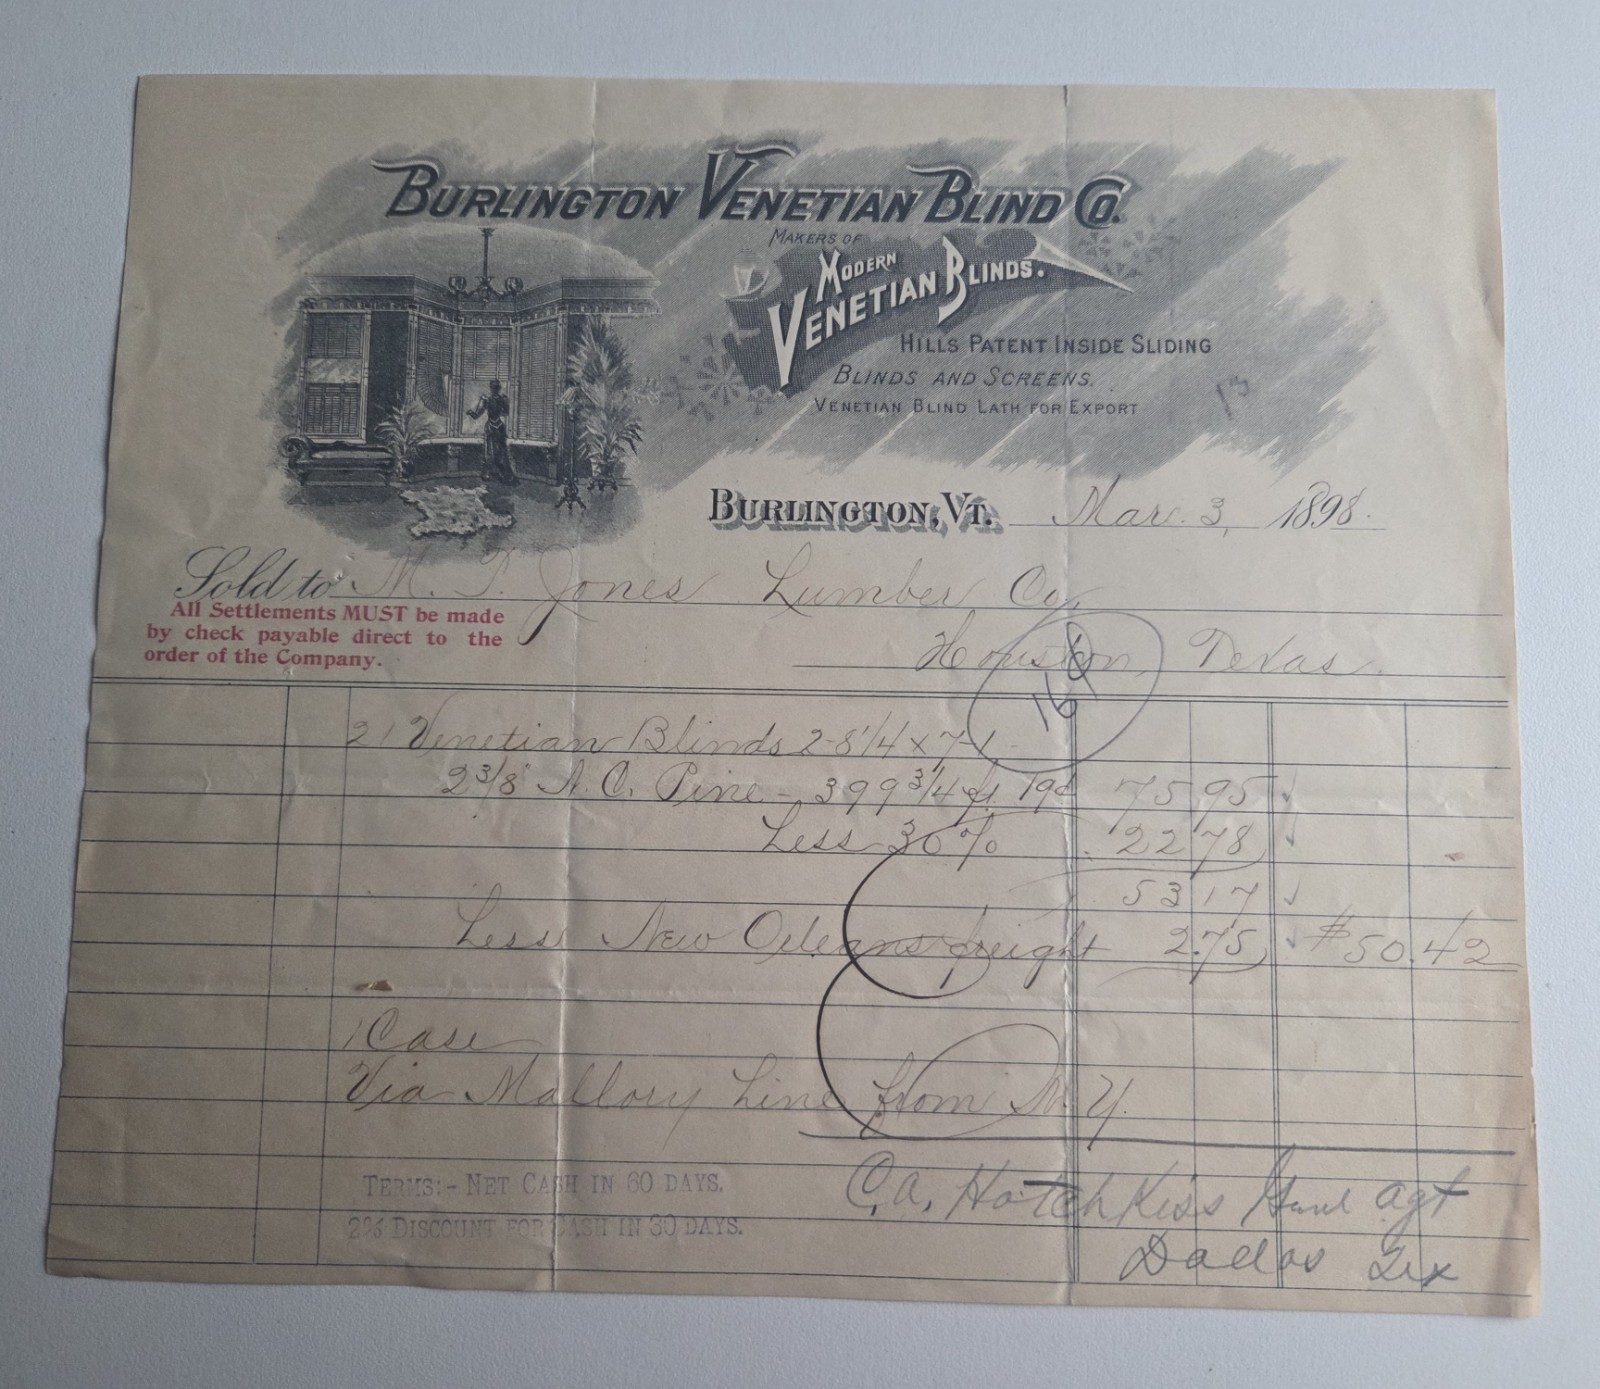 BURLINGTON VENETIAN BLIND CO.
MAKERS OF
MODERN
VENETIAN BLINDS.
HILLS PATENT INSIDE SLIDING
BLINDS AND SCREENS.
VENETIAN BLIND LATH FOR EXPORT
13
BURLINGTON, VT. Mar. 3, 1898.
Sold to M. T. Jones Lumber Co.
All Settlements MUST be made
by check payable direct to the
order of the Company.
Houston, Texas.
21 Venetian Blinds 2-8 1/4 x 7-1
2 3/8 N. C. Pine - 399 3/4 ft. 19¢ 75.95
Less 30% 22 78
53 17
Less New Orleans freight 2.75 $50.42
1 Case
Via Mallory Line from N. Y.
TERMS:- NET CASH IN 60 DAYS.
2% DISCOUNT FOR CASH IN 30 DAYS.
C. A. HotchKiss Genl Agt
Dallas Tex